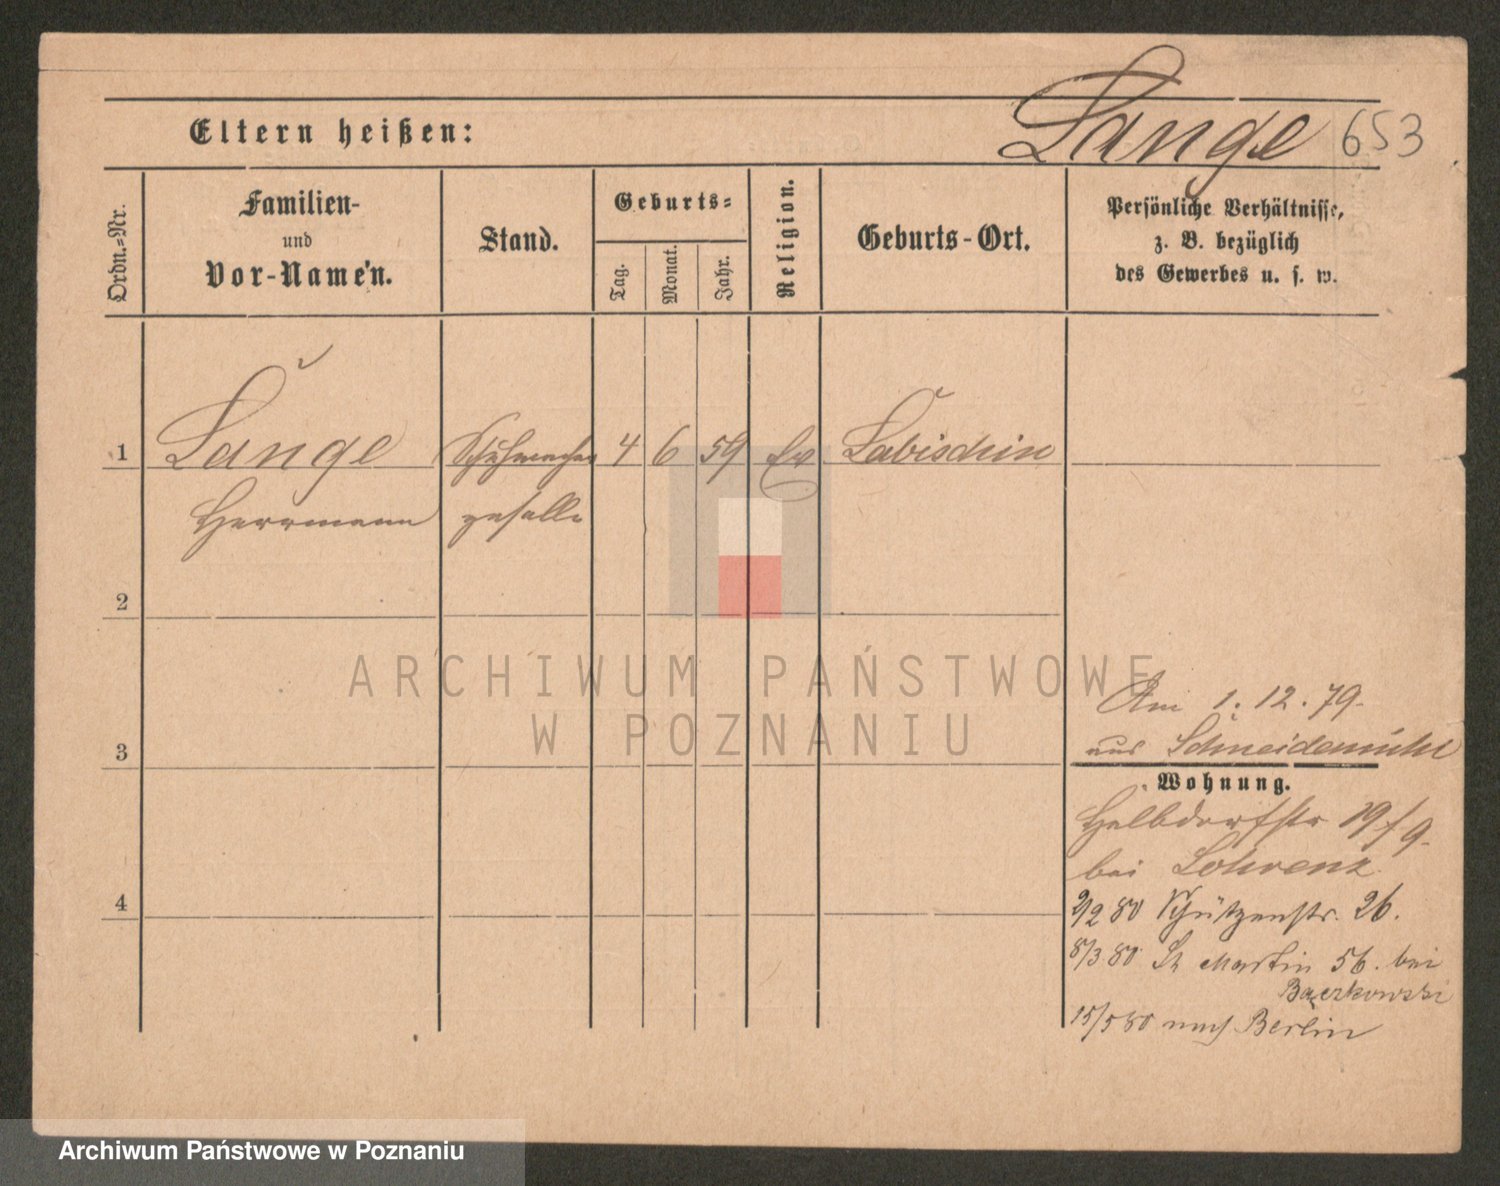 Lange 653
Eltern heißen:
Ordn.=Nr.
Familien-
und
Vor-Namen.
Stand.
Geburts=
Tag.
Monat.
Jahr.
Religion.
Geburts-Ort.
Persönliche Verhältnisse,
z. B. bezüglich
des Gewerbes u. s. w.
1 Lange Schuhmacher 4 6 59 Ev Labischin
Herrmann geselle
2
3
4
Am 1. 12. 79.
aus Schneidemühl
Wohnung.
Halbdorfstr 19/9.
bei Lohrenz
2/2 80 Schützenstr. 26.
8/3 80 St Martin 56. bei
Baczkowski
15/5 80 nach Berlin
ARCHIWUM PAŃSTWOWE
W POZNANIU
Archiwum Państwowe w Poznaniu